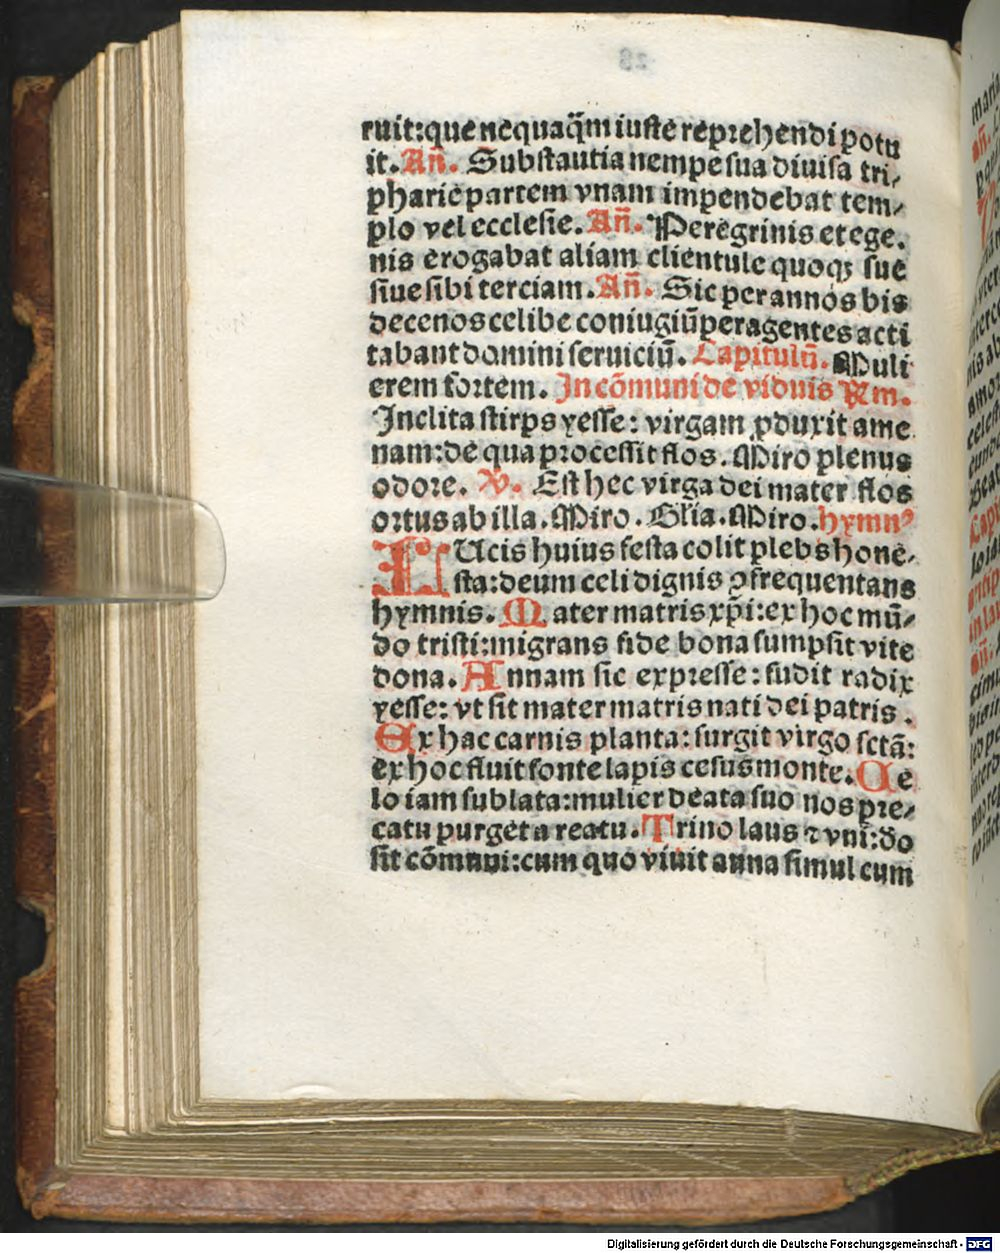 ruit:que nequaq̃m iuste reprehendi potu
it. Añ. Substantia nempe sua diuisa tri⸗
pharie partem vnam impendebat tem⸗
plo vel ecclesie. Añ. Peregrinis et ege.
nis erogabat aliam clientule quoqꝫ sue
siue sibi terciam. Añ. Sic per annos bis
decenos celibe coniugiū peragentes acti
tabant domini seruiciū. Capitulū. Muli
erem fortem. In cōmuni de viduis Rm.
Inclita stirps yesse: virgam ꝓduxit ame
nam: de qua processit flos. Miro plenus
odore. V. Est hec virga dei mater flos
ortus ab illa. Miro. Glia. Miro. hymnꝰ
LUcis huius festa colit plebs hone⸗
sta: deum celi dignis ꝯfrequentans
hymnis. Mater matris xp̄i: ex hoc mū⸗
do tristi: migrans fide bona sumpsit vite
dona. Annam sic expresse: fudit radix
yesse: vt sit mater matris nati dei patris.
Ex hac carnis planta: surgit virgo sctā:
ex hoc fluit fonte lapis cesus monte. Ce
lo iam sublata: mulier beata suo nos pre⸗
catu purget a reatu. Trino laus ⁊ vni: do
sit cōmuni: cum quo viuit anna simul cum
28
Digitalisierung gefördert durch die Deutsche Forschungsgemeinschaft - DFG